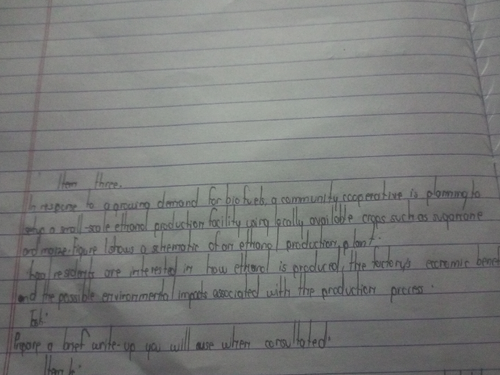 Item three.
In response to a growing demand for biofuels, a community cooperative is planning to
setup a small-scale ethanol production facility using locally available crops such as sugarcane
and maize. Figure 1 shows a schematic of an ethanol production plant.
residents are interested in how ethanol is produced, the factory's economic benefit
and the possible environmental impacts associated with the production process.
Task:
Prepare a brief write-up you will use when consultated.
Item